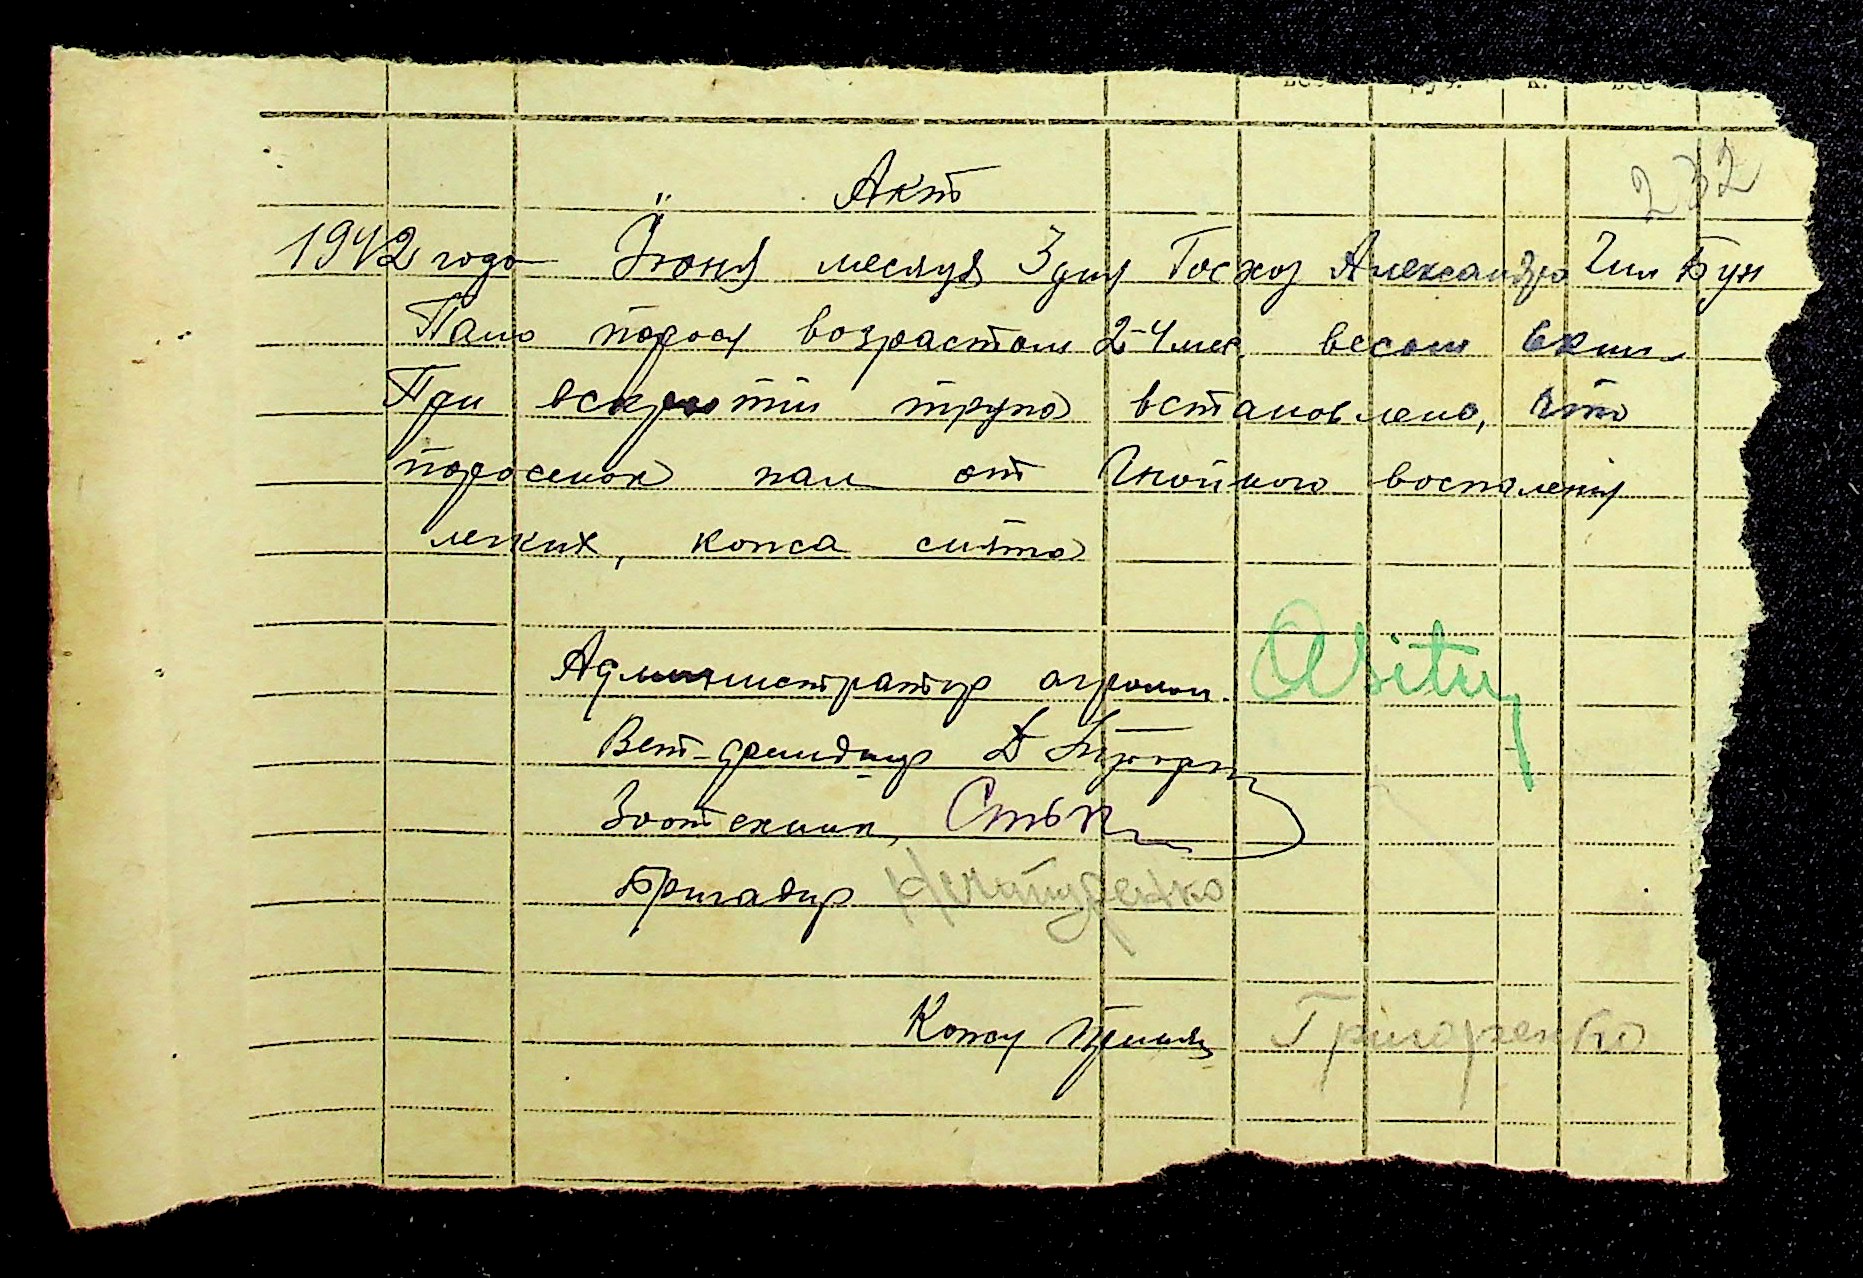 232
Акт
1942 года Июня месяця 3 дня Госхоз Александро Гил Бум
Пало порося возрастом 2-4 мес. весом 6 кил
При вскрытии трупа встановлено, что
поросенок пал от Гнойного воспаления
легких, кожа снята
Администратор агроном.
Вет-фельдшер Д
Зоотехник,
Бригадир
Кожу принял Григоренко